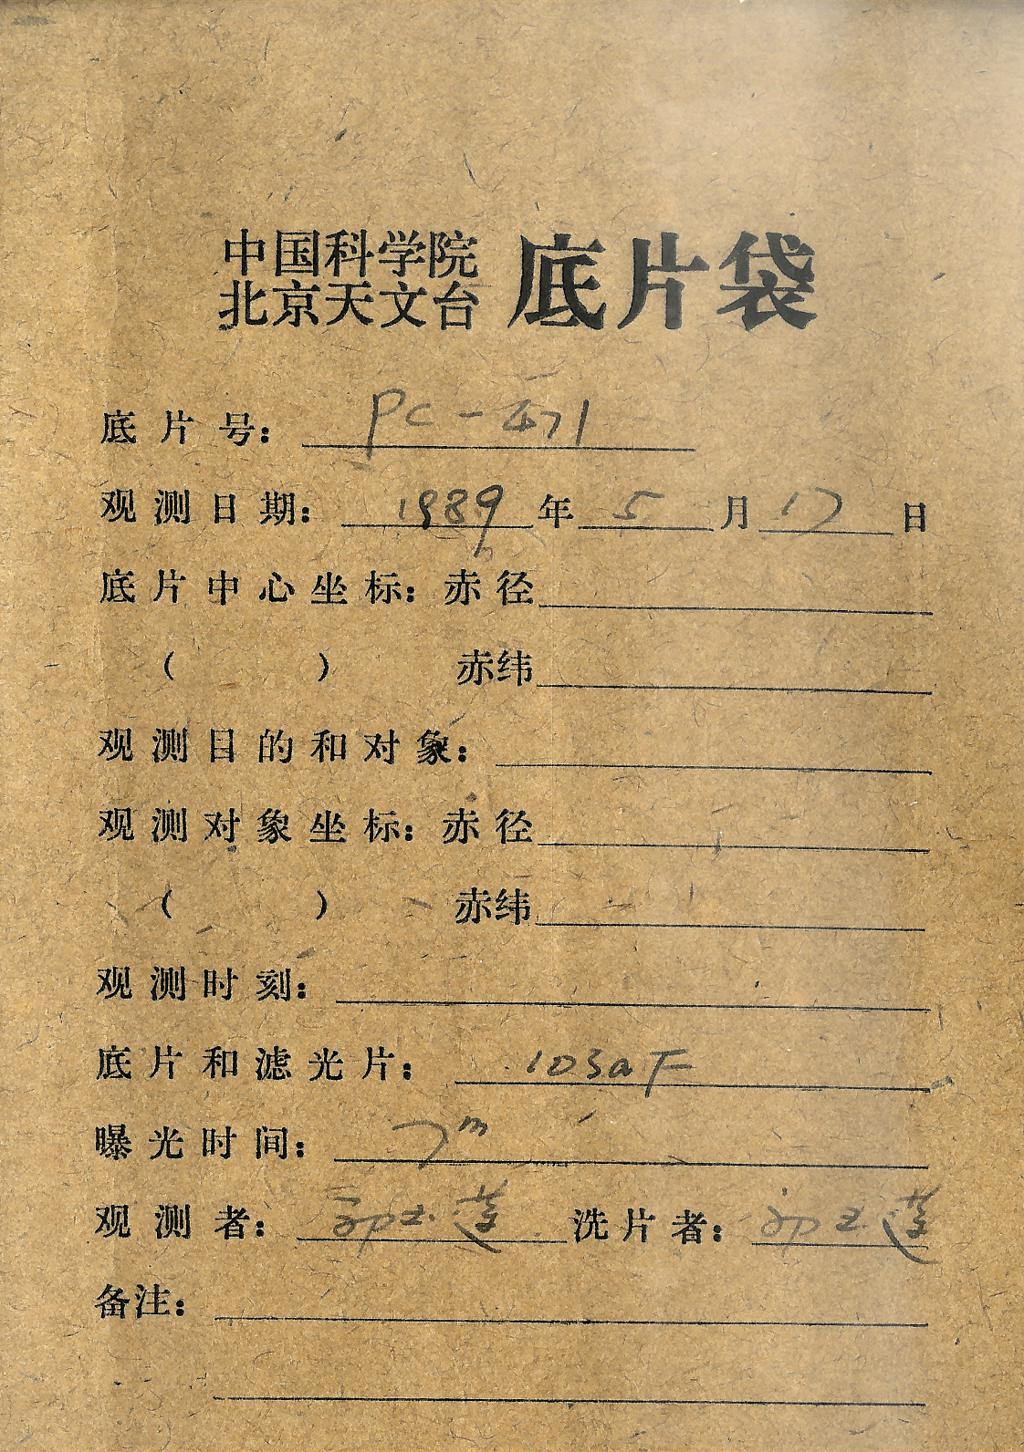 中国科学院
北京天文台 底片袋
底片号： PC-471
观测日期： 1989年5月17日
底片中心坐标：赤径
（ ） 赤纬
观测目的和对象：
观测对象坐标：赤径
（ ） 赤纬
观测时刻：
底片和滤光片： 103aF
曝光时间： 7m
观测者： 郭玉莲 洗片者： 郭玉莲
备注：